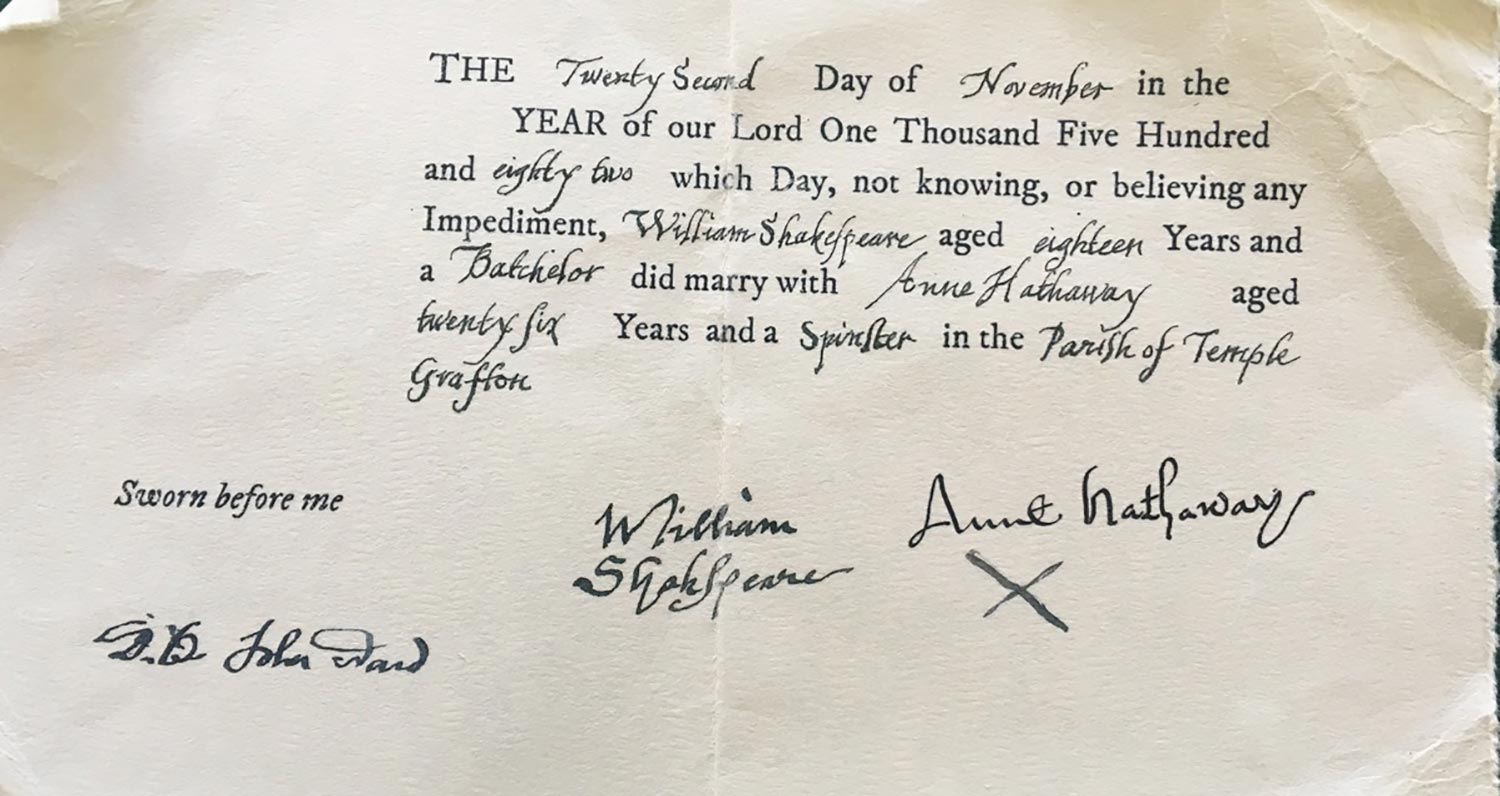 THE Twenty Second Day of November in the
YEAR of our Lord One Thousand Five Hundred
and eighty two which Day, not knowing, or believing any
Impediment, William Shakeſpeare aged eighteen Years and
a Batchelor did marry with Anne Hathaway aged
twenty ſix Years and a Spinſter in the Pariſh of Temple
Grafton
Sworn before me
William Anne Hathaway
Shakſpeare X
John Ward